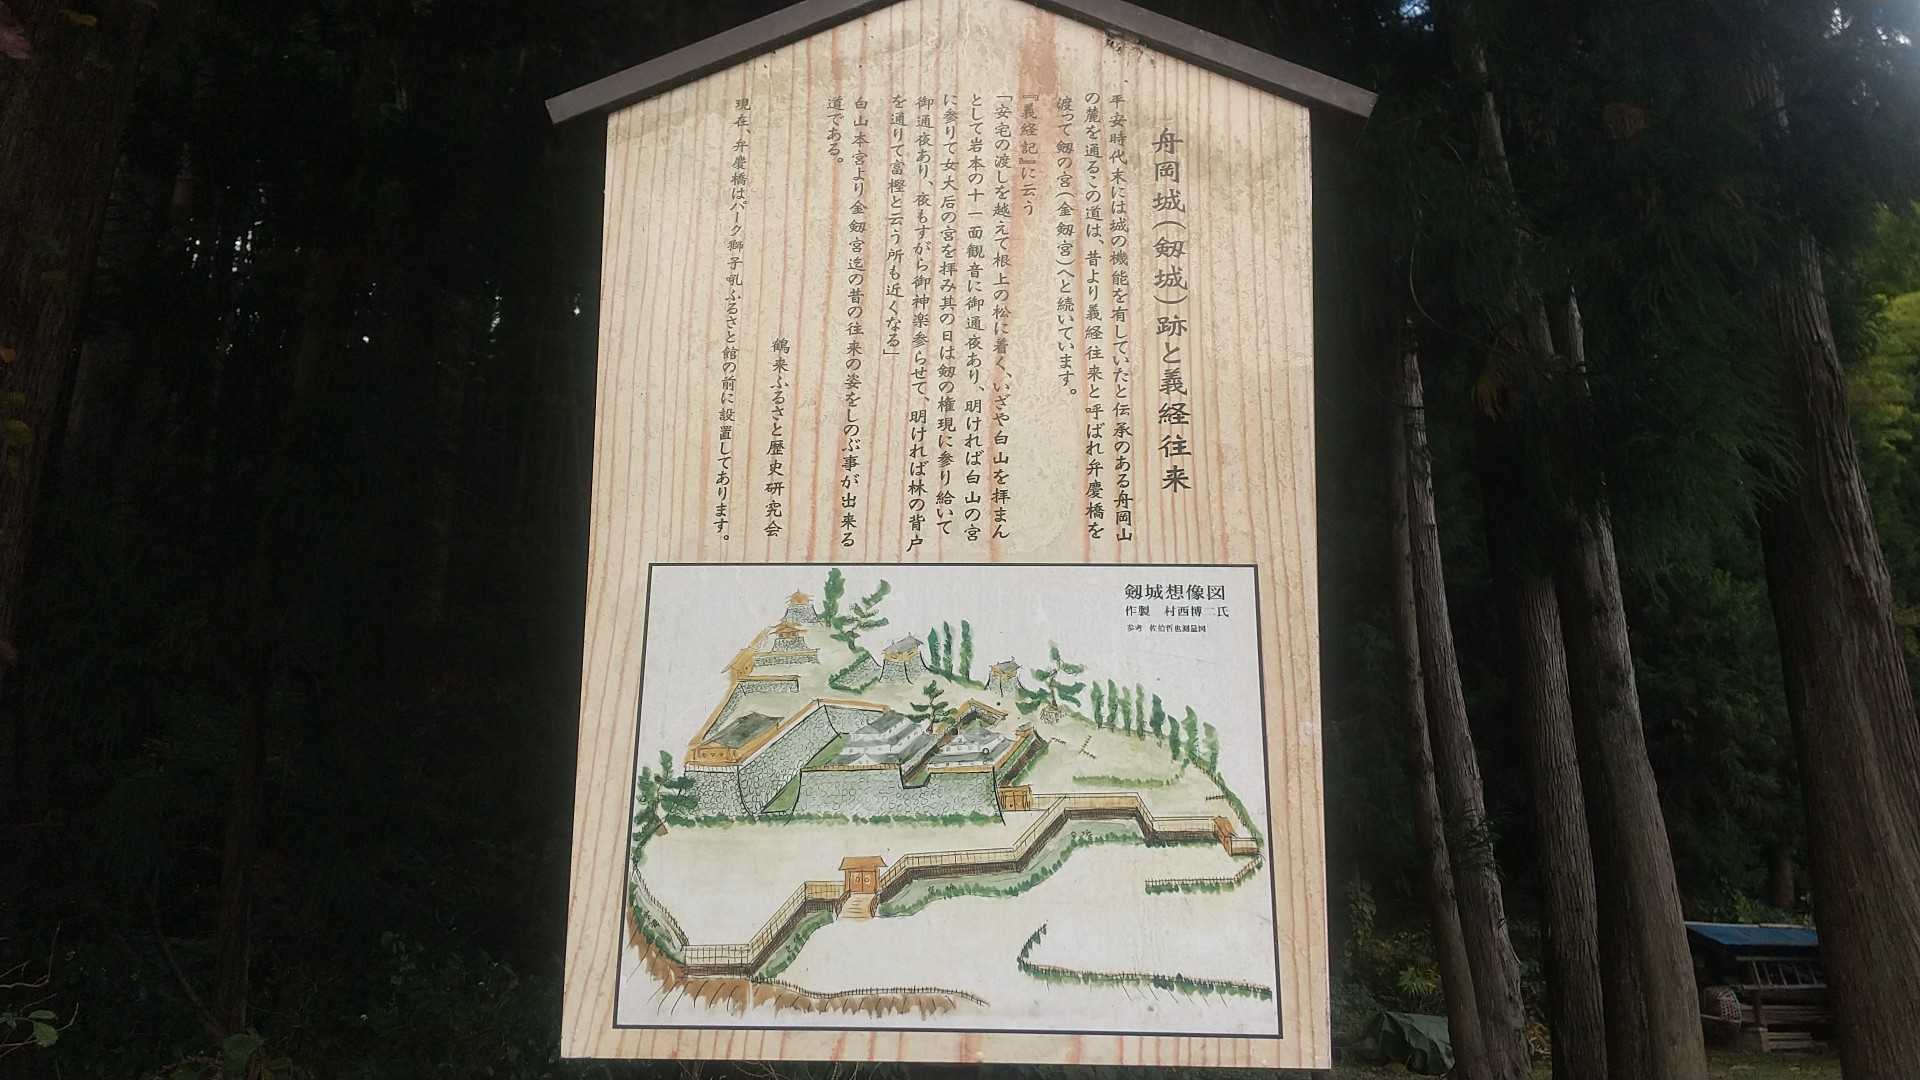 舟岡城(剱城)跡と義経往来
平安時代末には城の機能を有していたと伝承のある舟岡山
の麓を通るこの道は、昔より義経往来と呼ばれ弁慶橋を
渡って剱の宮(金剱宮)へと続いています。
『義経記』に云う
「安宅の渡しを越えて根上の松に着く、いざや白山を拝まん
として岩本の十一面観音に御通夜あり、明ければ白山の宮
に参りて女大后の宮を拝み其の日は剱の権現に参り給いて
御通夜あり、夜もすがら御神楽参らせて、明ければ林の背戸
を通りて富樫と云う所も近くなる」
白山本宮より金剱宮迄の昔の往来の姿をしのぶ事が出来る
道である。
鶴来ふるさと歴史研究会
現在、弁慶橋はパーク獅子吼ふるさと館の前に設置してあります。
剱城想像図
作製 村西博二氏
参考 佐伯哲也測量図